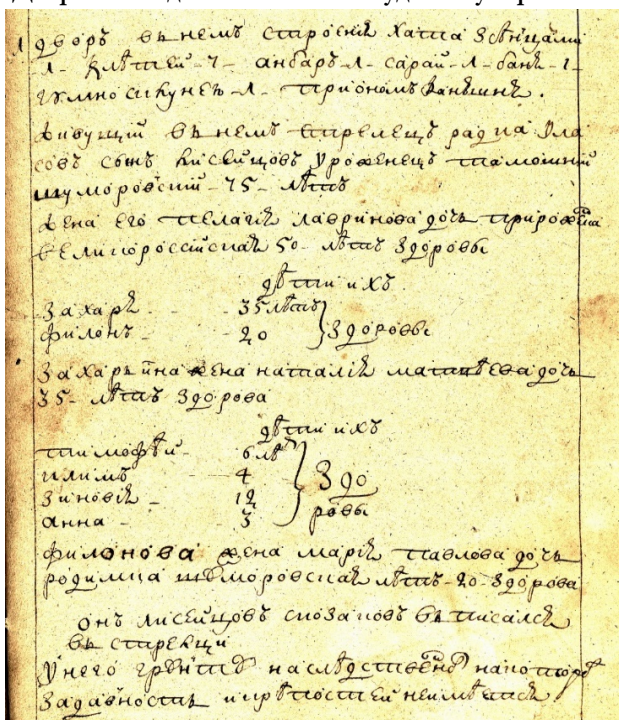 1 дворъ внемъ строения хата зсѣнцами
1 - клѣтей - 7 - анбаръ - 1 - сарай - 1 - баня - 1 -
гумно сикунею - 1 -
живущий внемъ стрелецъ радиа ула
совъ сынъ лисеицовъ уроженецъ тамошний
шуморовский - 75 - лѣтъ
жена его пелагия лавринова дочь
великороссийская 50 - лѣтъ здоровы
дѣти ихъ
захаръ - 35 лѣтъ
филонъ - 20 здоровы
захарьина жена наталия матвѣева дочь
35 - лѣтъ здорова
дѣти ихъ
тимофѣй - 6 лѣ
климъ - 4 здо
зиновия - 12
анна - 3 ровы
филонова жена мария павлова дочь
родимица шуморовская лѣтъ - 20 - здорова
онъ лисеицовъ сизаковъ вписался
въ стрелци
унего грунтъ наслѣдственно накоторо
задавностию крѣпостей неимѣется